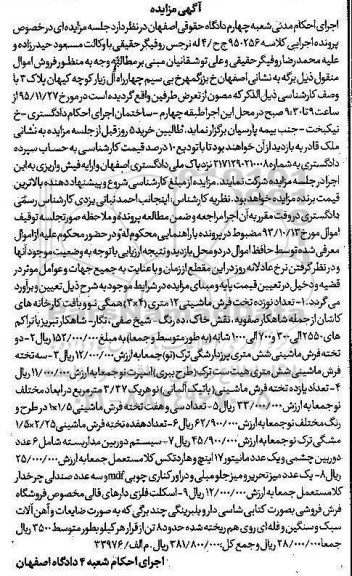 آگهی مزایده
اجرای احکام مدنی شعبه چهارم دادگاه حقوقی اصفهان در نظر دارد جلسه مزایده ای در خصوص
پرونده اجرایی کلاسه ۹۵۰۲۵۶ ج ح /۴ له نرجس روفیگر حقیقی با وکالت مسعود حیدرزاده و
علیه محمدرضا روفیگر حقیقی و علی توشقانیان مبنی بر مطالبه وجه به منظور فروش اموال
منقول ذیل برگه به نشانی اصفهان خ بزرگمهر خ بی سیم چهارراه آل زیار کوچه کیهان پلاک ۳ با
وصف کارشناسی ذیل الذکر که مصون از تعرض طرفین واقع گردیده است در مورخ ۹۵/۱۱/۲۷ از
ساعت ۹ تا ۹:۳۰ صبح در محل این اجرا طبقه چهارم - ساختمان اجرای احکام دادگستری - خ
نیکبخت - جنب بیمه پارسیان برگزار نماید. طالبین خرید ۵ روز قبل از جلسه مزایده به نشانی
ملک قادر به بازدید از آن خواهند بود تا با تودیع ۱۰ درصد قیمت کارشناسی به حساب سپرده
دادگستری به شماره ۲۱۷۱۲۹۰۲۱۰۰۰۸ نزد بانک ملی دادگستری اصفهان و ارایه فیش واریزی به این
اجرا در جلسه مزایده شرکت نمایند. مزایده از مبلغ کارشناسی شروع و پیشنهاد دهنده بالاترین
قیمت برنده مزایده خواهد بود. نظریه کارشناس: اینجانب احمد نباتی یزدی کارشناس رسمی
دادگستری در وقت مقرر به آن اجرا مراجعه و ضمن مطالعه پرونده و ملاحظه صورتجلسه توقیف
اموال مورخ ۹۳/۱۰/۱۳ مضبوط در پرونده با راهنمایی محکوم له و در حضور محکوم علیه از اموال
معرفی شده توسط حافظ اموال در دو محل بازدید و نتیجه ارزیابی با توجه به وضعیت موجود آنها
و در نظر گرفتن نرخ عادلانه روز در این مقطع از زمان و با عنایت به جمیع جهات و عوامل موثر در
قضیه و دخیل در تعیین قیمت پایه و مبنای مزایده در شرایط موجود به شرح ذیل تعیین و برآورد
می گردد. ۱- تعداد نوزده تخت فرش ماشینی ۱۲ متری (۴×۳) همگی نو و بافت کارخانه های
کاشان از جمله شاهکار صفویه، نقش خاک، ده رنگ - شیخ صفی، نگار - شاهکار تبریز با تراکم
های ۲۵۵۰ الی ۳۰۰۰ و ۷۰۰ الی ۱۰۰۰ شانه (به طور متوسط و جمعا) به مبلغ ۱۵۲/۰۰۰/۰۰۰ ریال ۲- دو
تخته فرش ماشینی شش متری پرز دار شگی ترک (نو) جمعا به ارزش ۱۲/۰۰۰/۰۰۰ ریال ۳- سه تخته
فرش ماشینی شش متری هیت ست ترک (طرح ببری) اسپرت نو جمعا به ارزش ۱۱/۰۰۰/۰۰۰ ریال
۴- تعداد یازده تخته فرش ماشینی (باتیک آلمانی) نو هریک ۳/۳۷ متر مربع در ابعاد مختلف
نو جمعا به ارزش ۳۳/۰۰۰/۰۰۰ ریال ۵- تعداد سی و هفت تخته فرش ماشینی ۱×۱/۵ در طرح و
رنگ مختلف نو جمعا به ارزش ۶۲/۹۰۰/۰۰۰ ریال ۶- تعداد هفده تخته فرش ماشینی ۲/۲۵×۱/۵
مشگی ترک نو جمعا به ارزش ۴۵/۹۰۰/۰۰۰ ریال ۷- سیستم دوربین مداربسته شامل ۶ عدد
دوربین چشمی و یک عدد مانیتور ۱۷ اینچ و هارد تکس کلا مستعمل جمعا به ارزش ۲۵/۰۰۰/۰۰۰
ریال ۸- یک عدد میز تحریر و میز جلو مبلی و دراور کناری چوبی mdf و سه عدد صندلی چرخدار
کلا مستعمل جمعا به ارزش ۱۲/۰۰۰/۰۰۰ ریال ۹- اسکلت فلزی دارهای قالی مخصوص فروشگاه
فرش فروشی بصورت کتابی شاسی دار و بلبرینگی چند برگی که به صورت ضایعات و آهن آلات
سبک و سنگین و فله ای روی هم ریخته شده حدود ۸ تن از قرار هر کیلو بطور متوسط ۳۵۰۰ ریال
جمعا ۲۸/۰۰۰/۰۰۰ ریال و جمع کل: ۳۸۱/۸۰۰/۰۰۰ ریال. م الف/ ۳۳۹۷۶
اجرای احکام شعبه ۴ دادگاه اصفهان